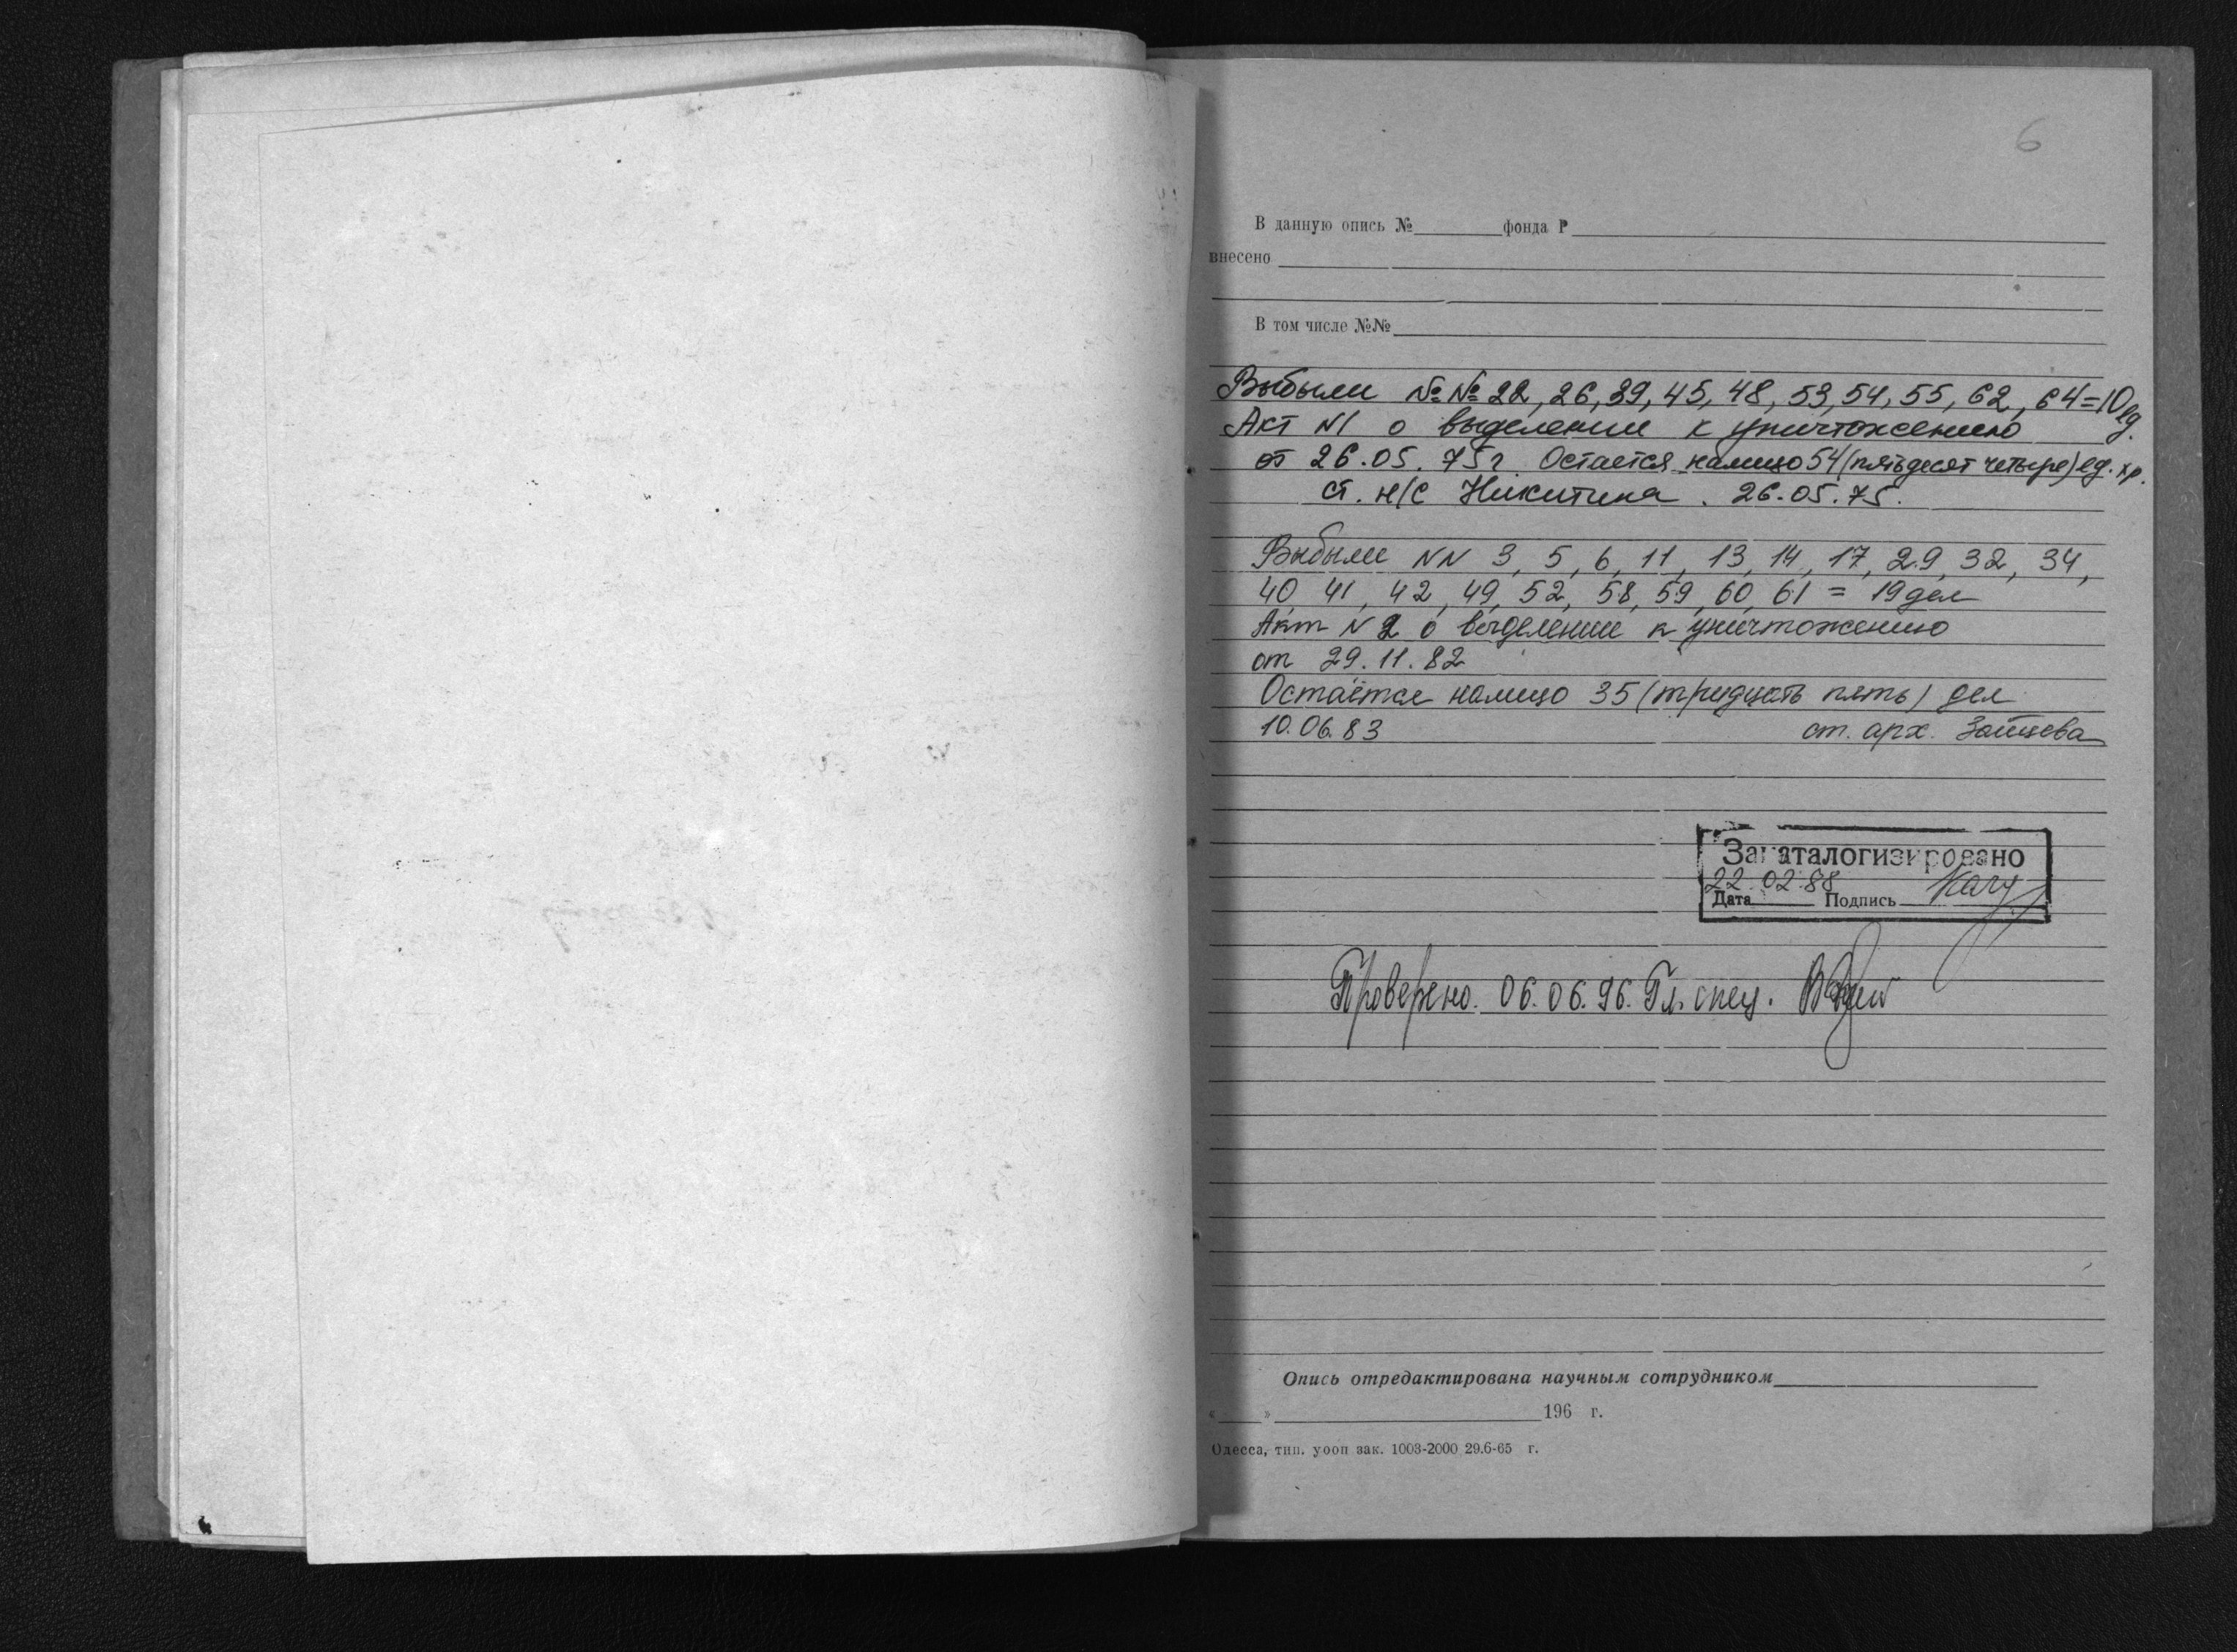 6
В данную опись № фонда Р
внесено
В том числе №№
Выбыли №№ 22, 26, 39, 45, 48, 53, 54, 55, 62, 64=10 ед.
Акт N1 о выделении к уничтожению
от 26.05.75г. Остается налицо 54 (пятьдесят четыре) ед. хр.
ст. н/с Никитина. 26.05.75.
Выбыли NN 3, 5, 6, 11, 13, 14, 17, 29, 32, 34,
40, 41, 42, 49, 52, 58, 59, 60, 61 = 19 дел
Акт N 2 о выделении к уничтожению
от 29.11.82
Остаётся налицо 35 (тридцать пять) дел
10.06.83 ст. арх. Зайцева
Закаталогизировано
22.02.88
Дата Подпись
Проверено. 06.06.96. Гл. спец.
Опись отредактирована научным сотрудником
« » 196 г.
Одесса, тип. уооп зак. 1003-2000 29.6-65 г.